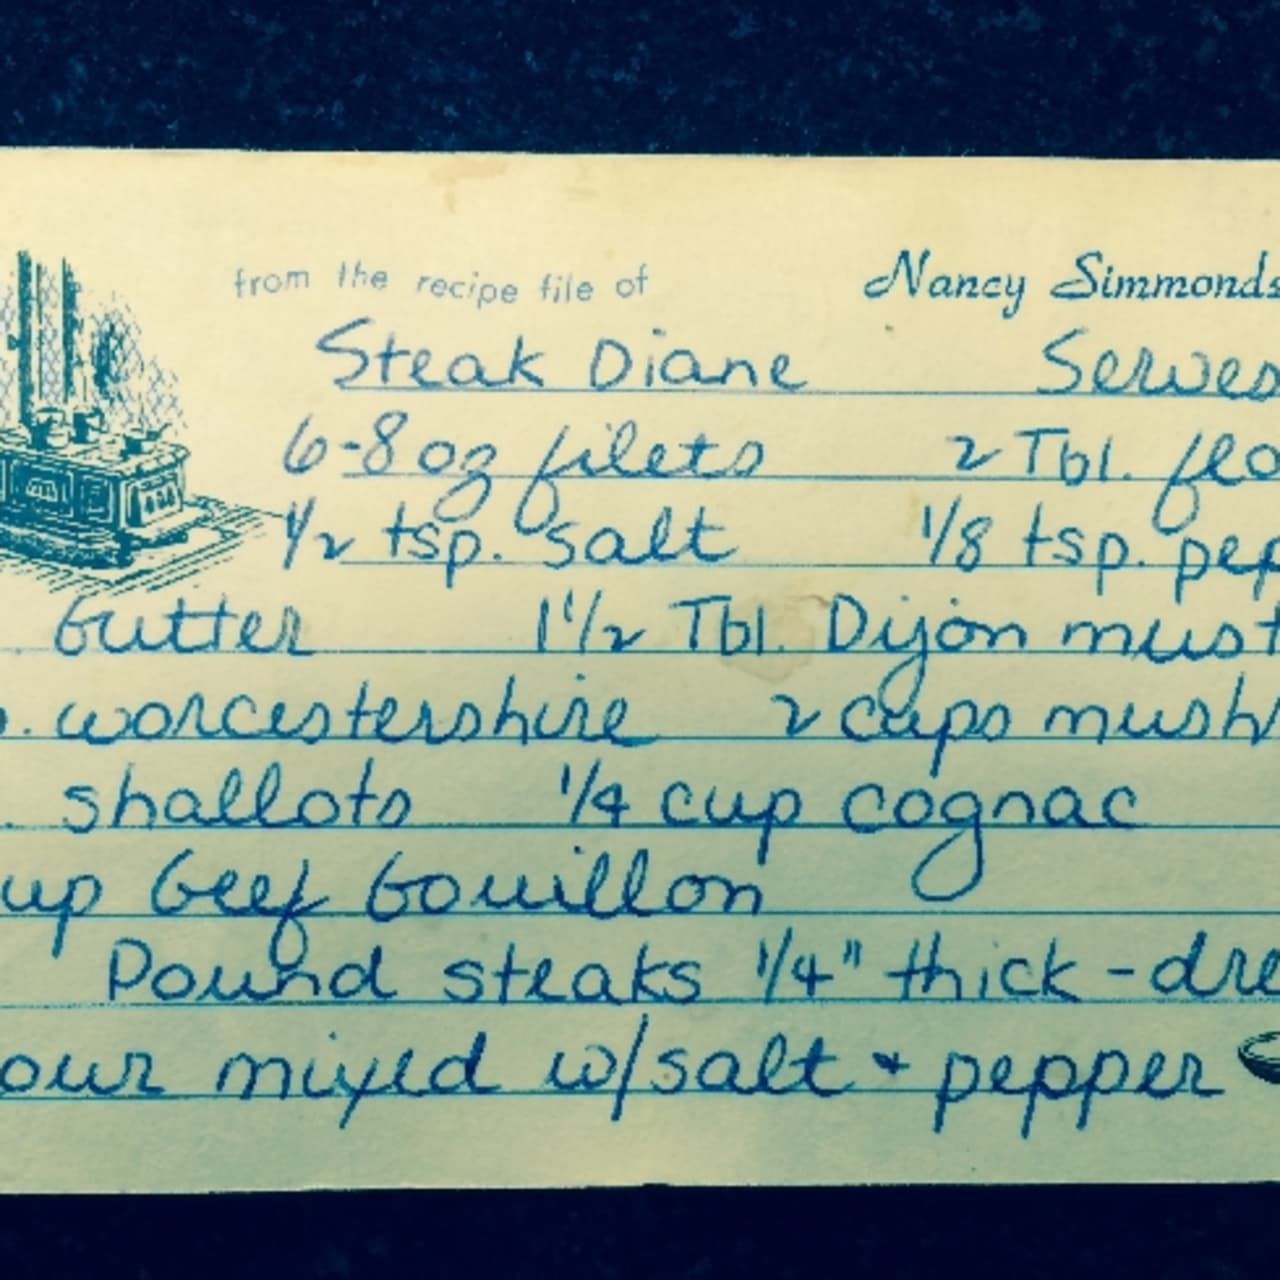 from the recipe file of Nancy Simmonds
Steak Diane Serves
6-8 oz filets 2 Tbl. flo
1/2 tsp. salt 1/8 tsp. pep
butter 1 1/2 Tbl. Dijon must
. worcestershire 2 cups mush
. shallots 1/4 cup cognac
up beef bouillon
Pound steaks 1/4" thick - dre
our mixed w/salt + pepper